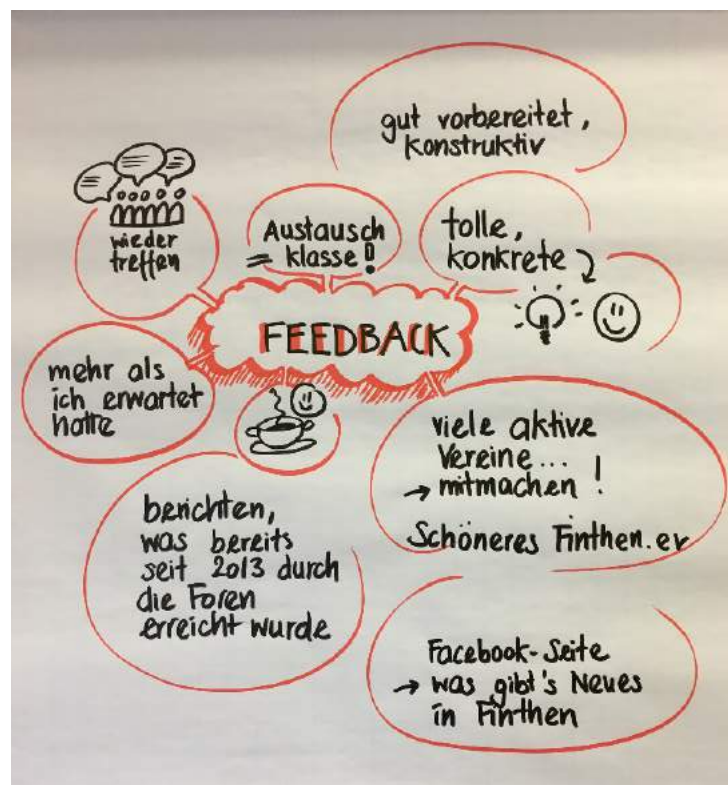 gut vorbereitet,
konstruktiv
wieder
treffen
Austausch
= klasse!
tolle,
konkrete
FEEDBACK
mehr als
ich erwartet
hatte
viele aktive
Vereine...
→ mitmachen!
Schöneres Finthen.ev
berichten,
was bereits
seit 2013 durch
die Foren
erreicht wurde
Facebook-Seite
→ was gibt's Neues
in Finthen